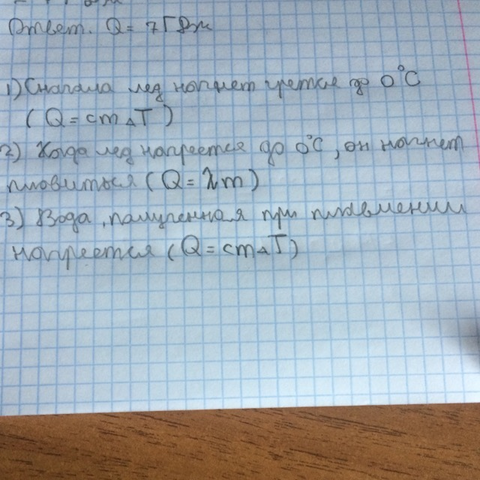 Ответ. Q = 7ГДж
1) Сначала лед начнет греется до 0°С
(Q = cm△T)
2) Когда лед нагреется до 0°С, он начнет
плавиться (Q = λm)
3) Вода, полученная при плавлении
нагреется (Q = cm△T)